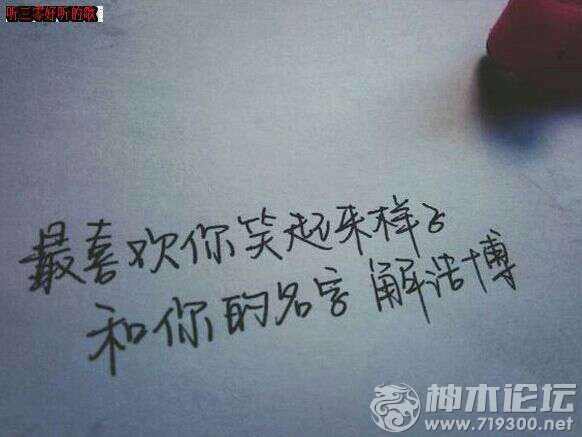 听三零好听的歌
最喜欢你笑起来样子
和你的名字 解浩博
神木论坛
www.719300.net